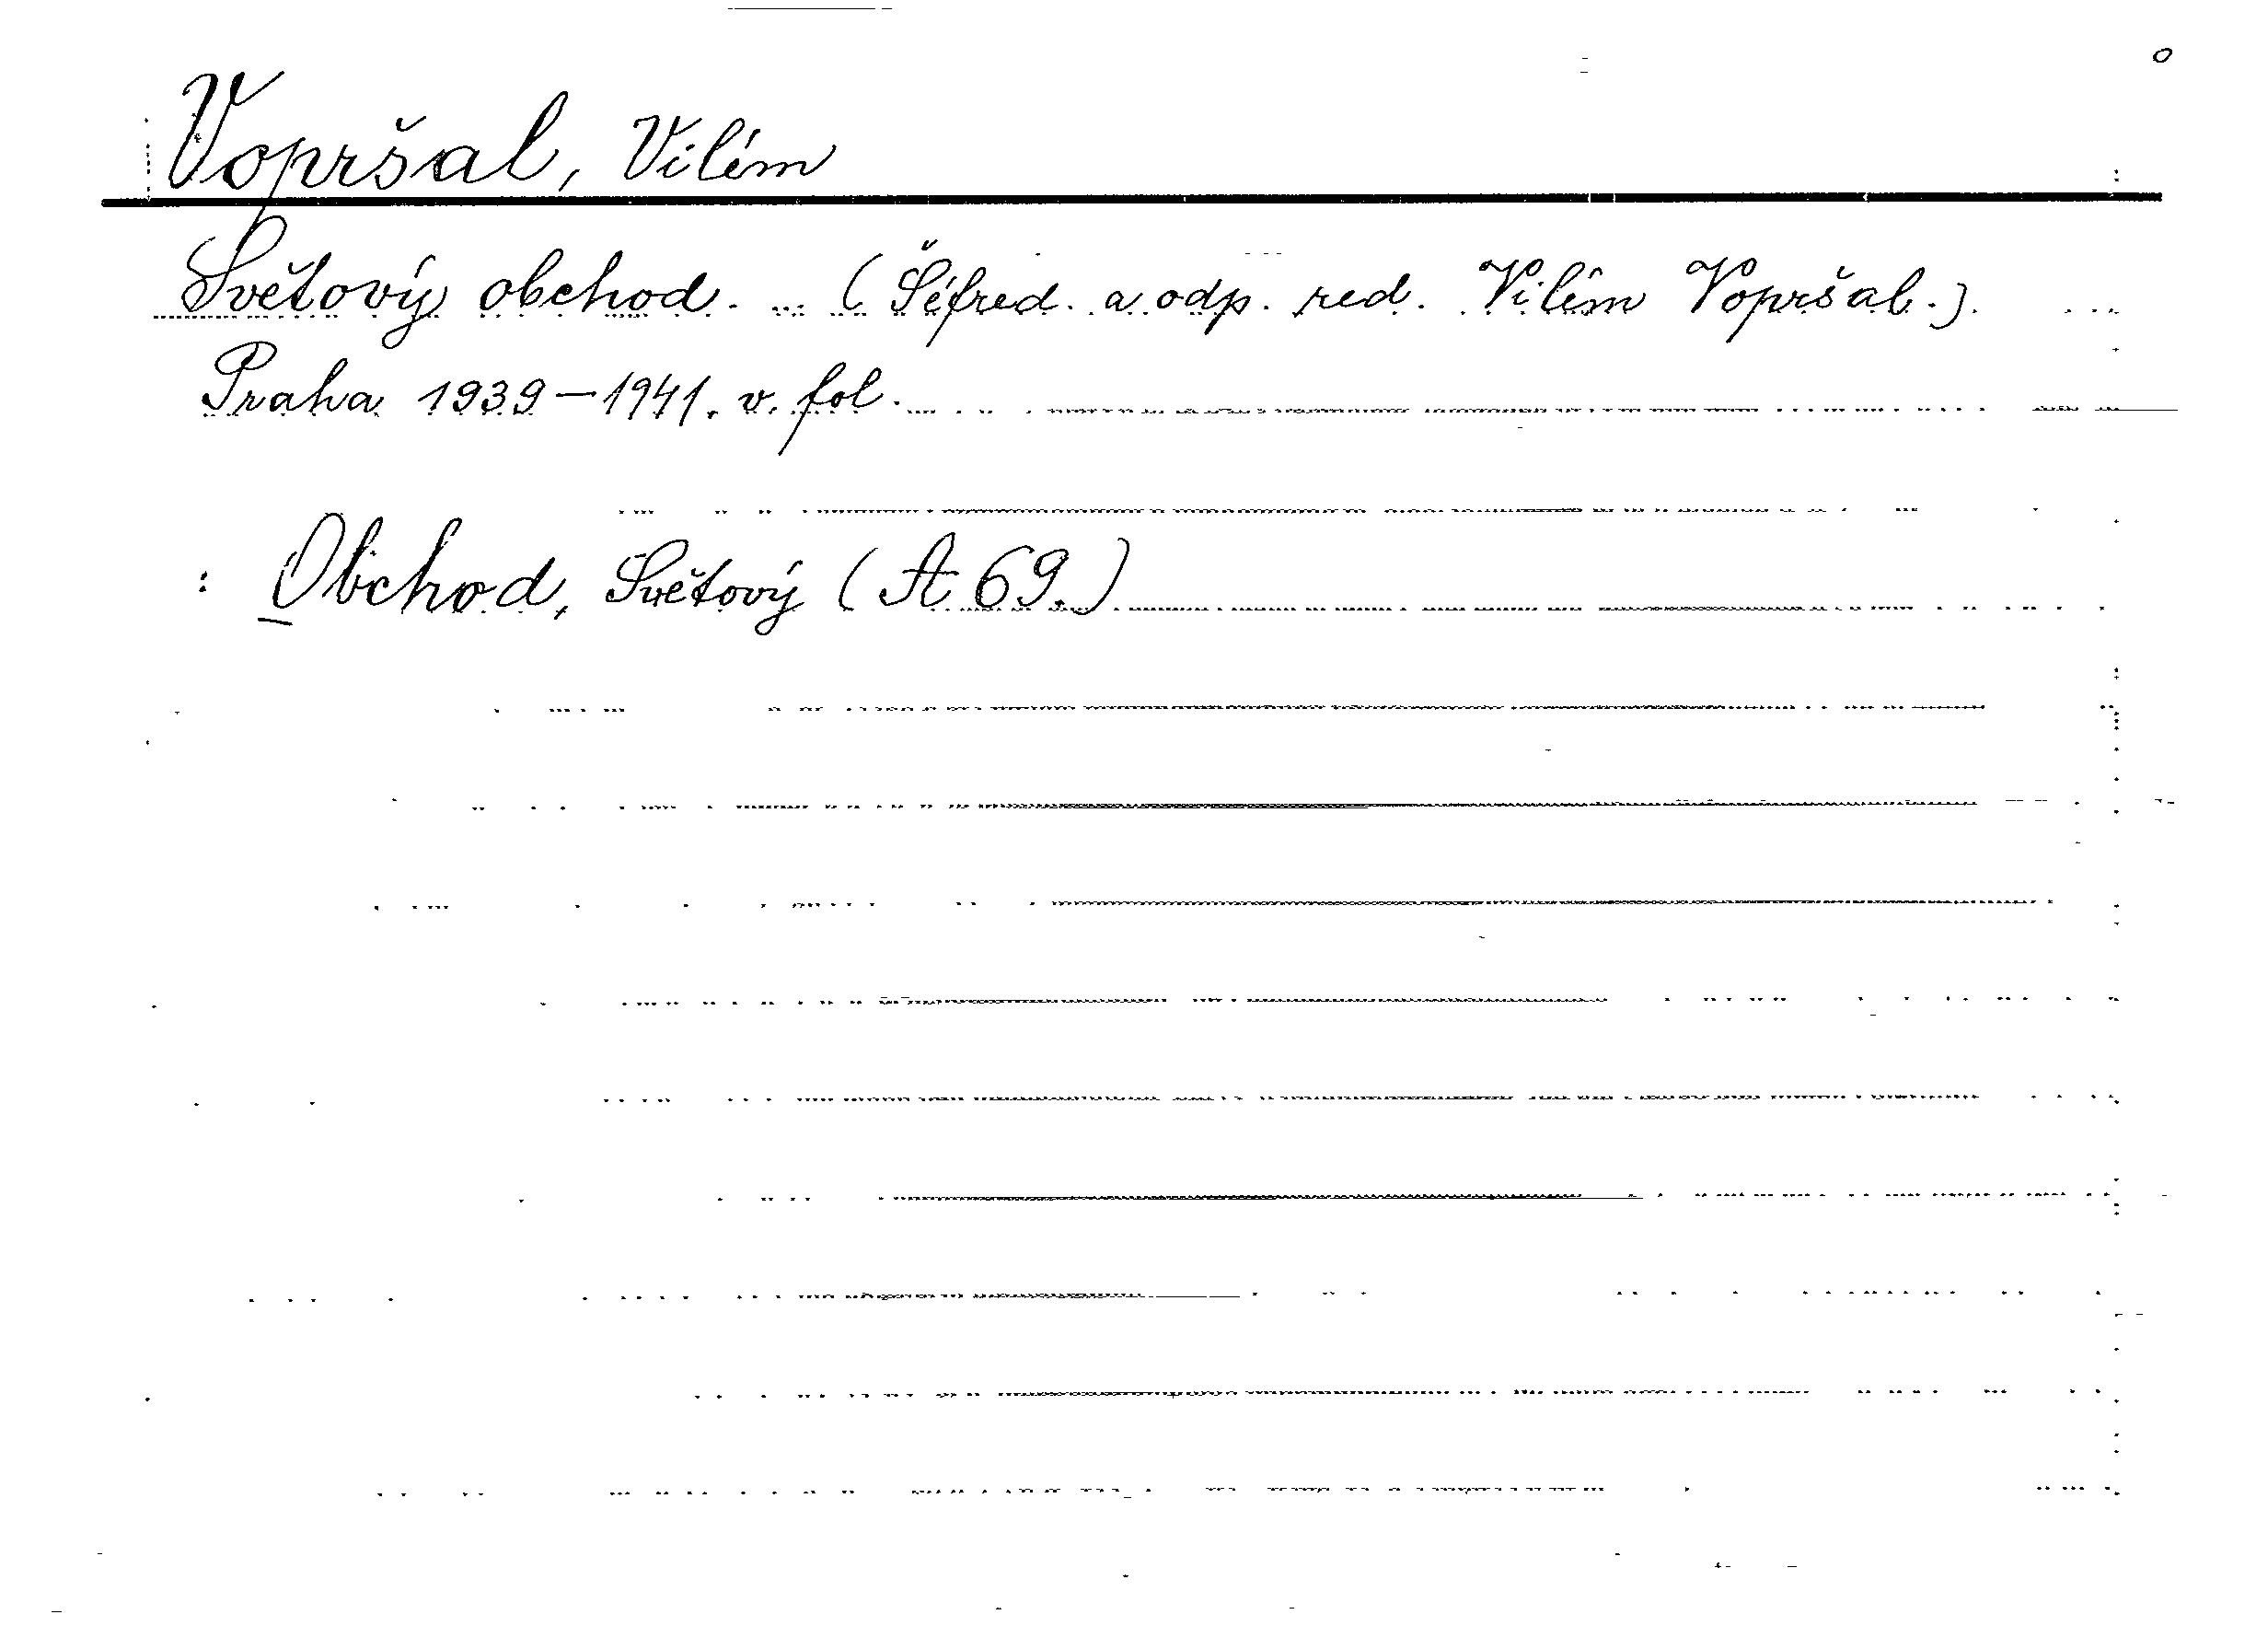 Vopršal, Vilém
Světový obchod. ... (Šéfred. a odp. red. Vilém Vopršal.).
Praha 1939–1941. v. fol.
: Obchod, Světový (A 69.)